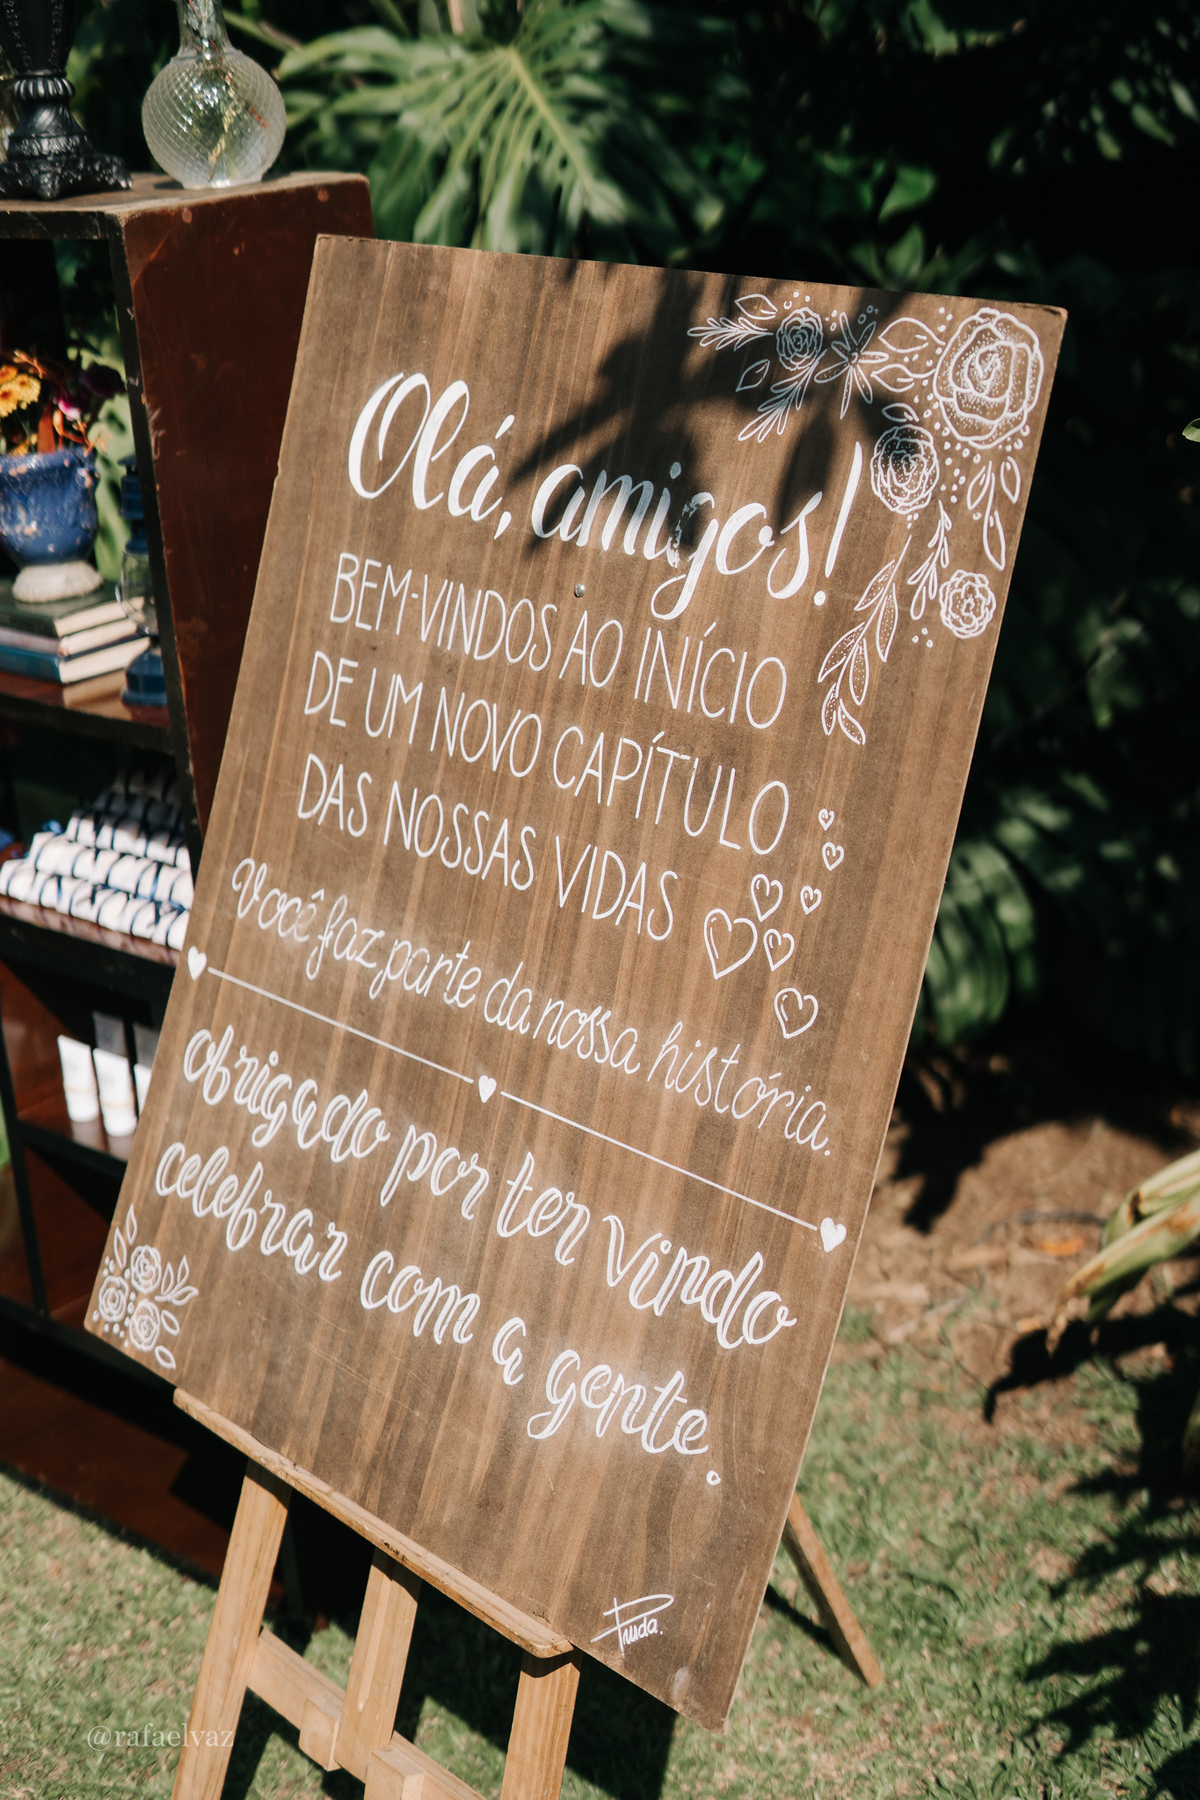 Olá, amigos!
BEM-VINDOS AO INÍCIO
DE UM NOVO CAPÍTULO
DAS NOSSAS VIDAS
Você faz parte da nossa história.
obrigado por ter vindo
celebrar com a gente.
@rafaelvaz